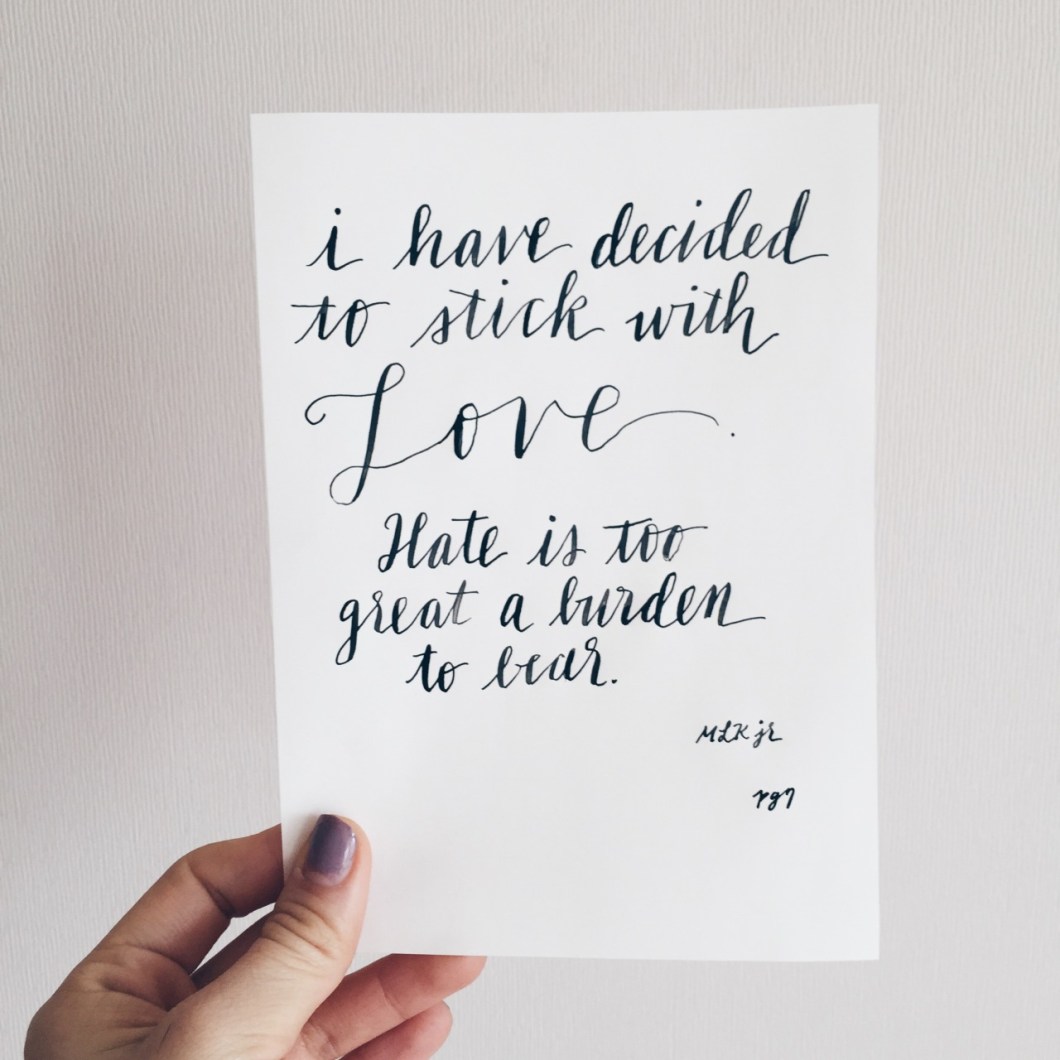 i have decided
to stick with
Love.
Hate is too
great a burden
to bear.
MLK jr